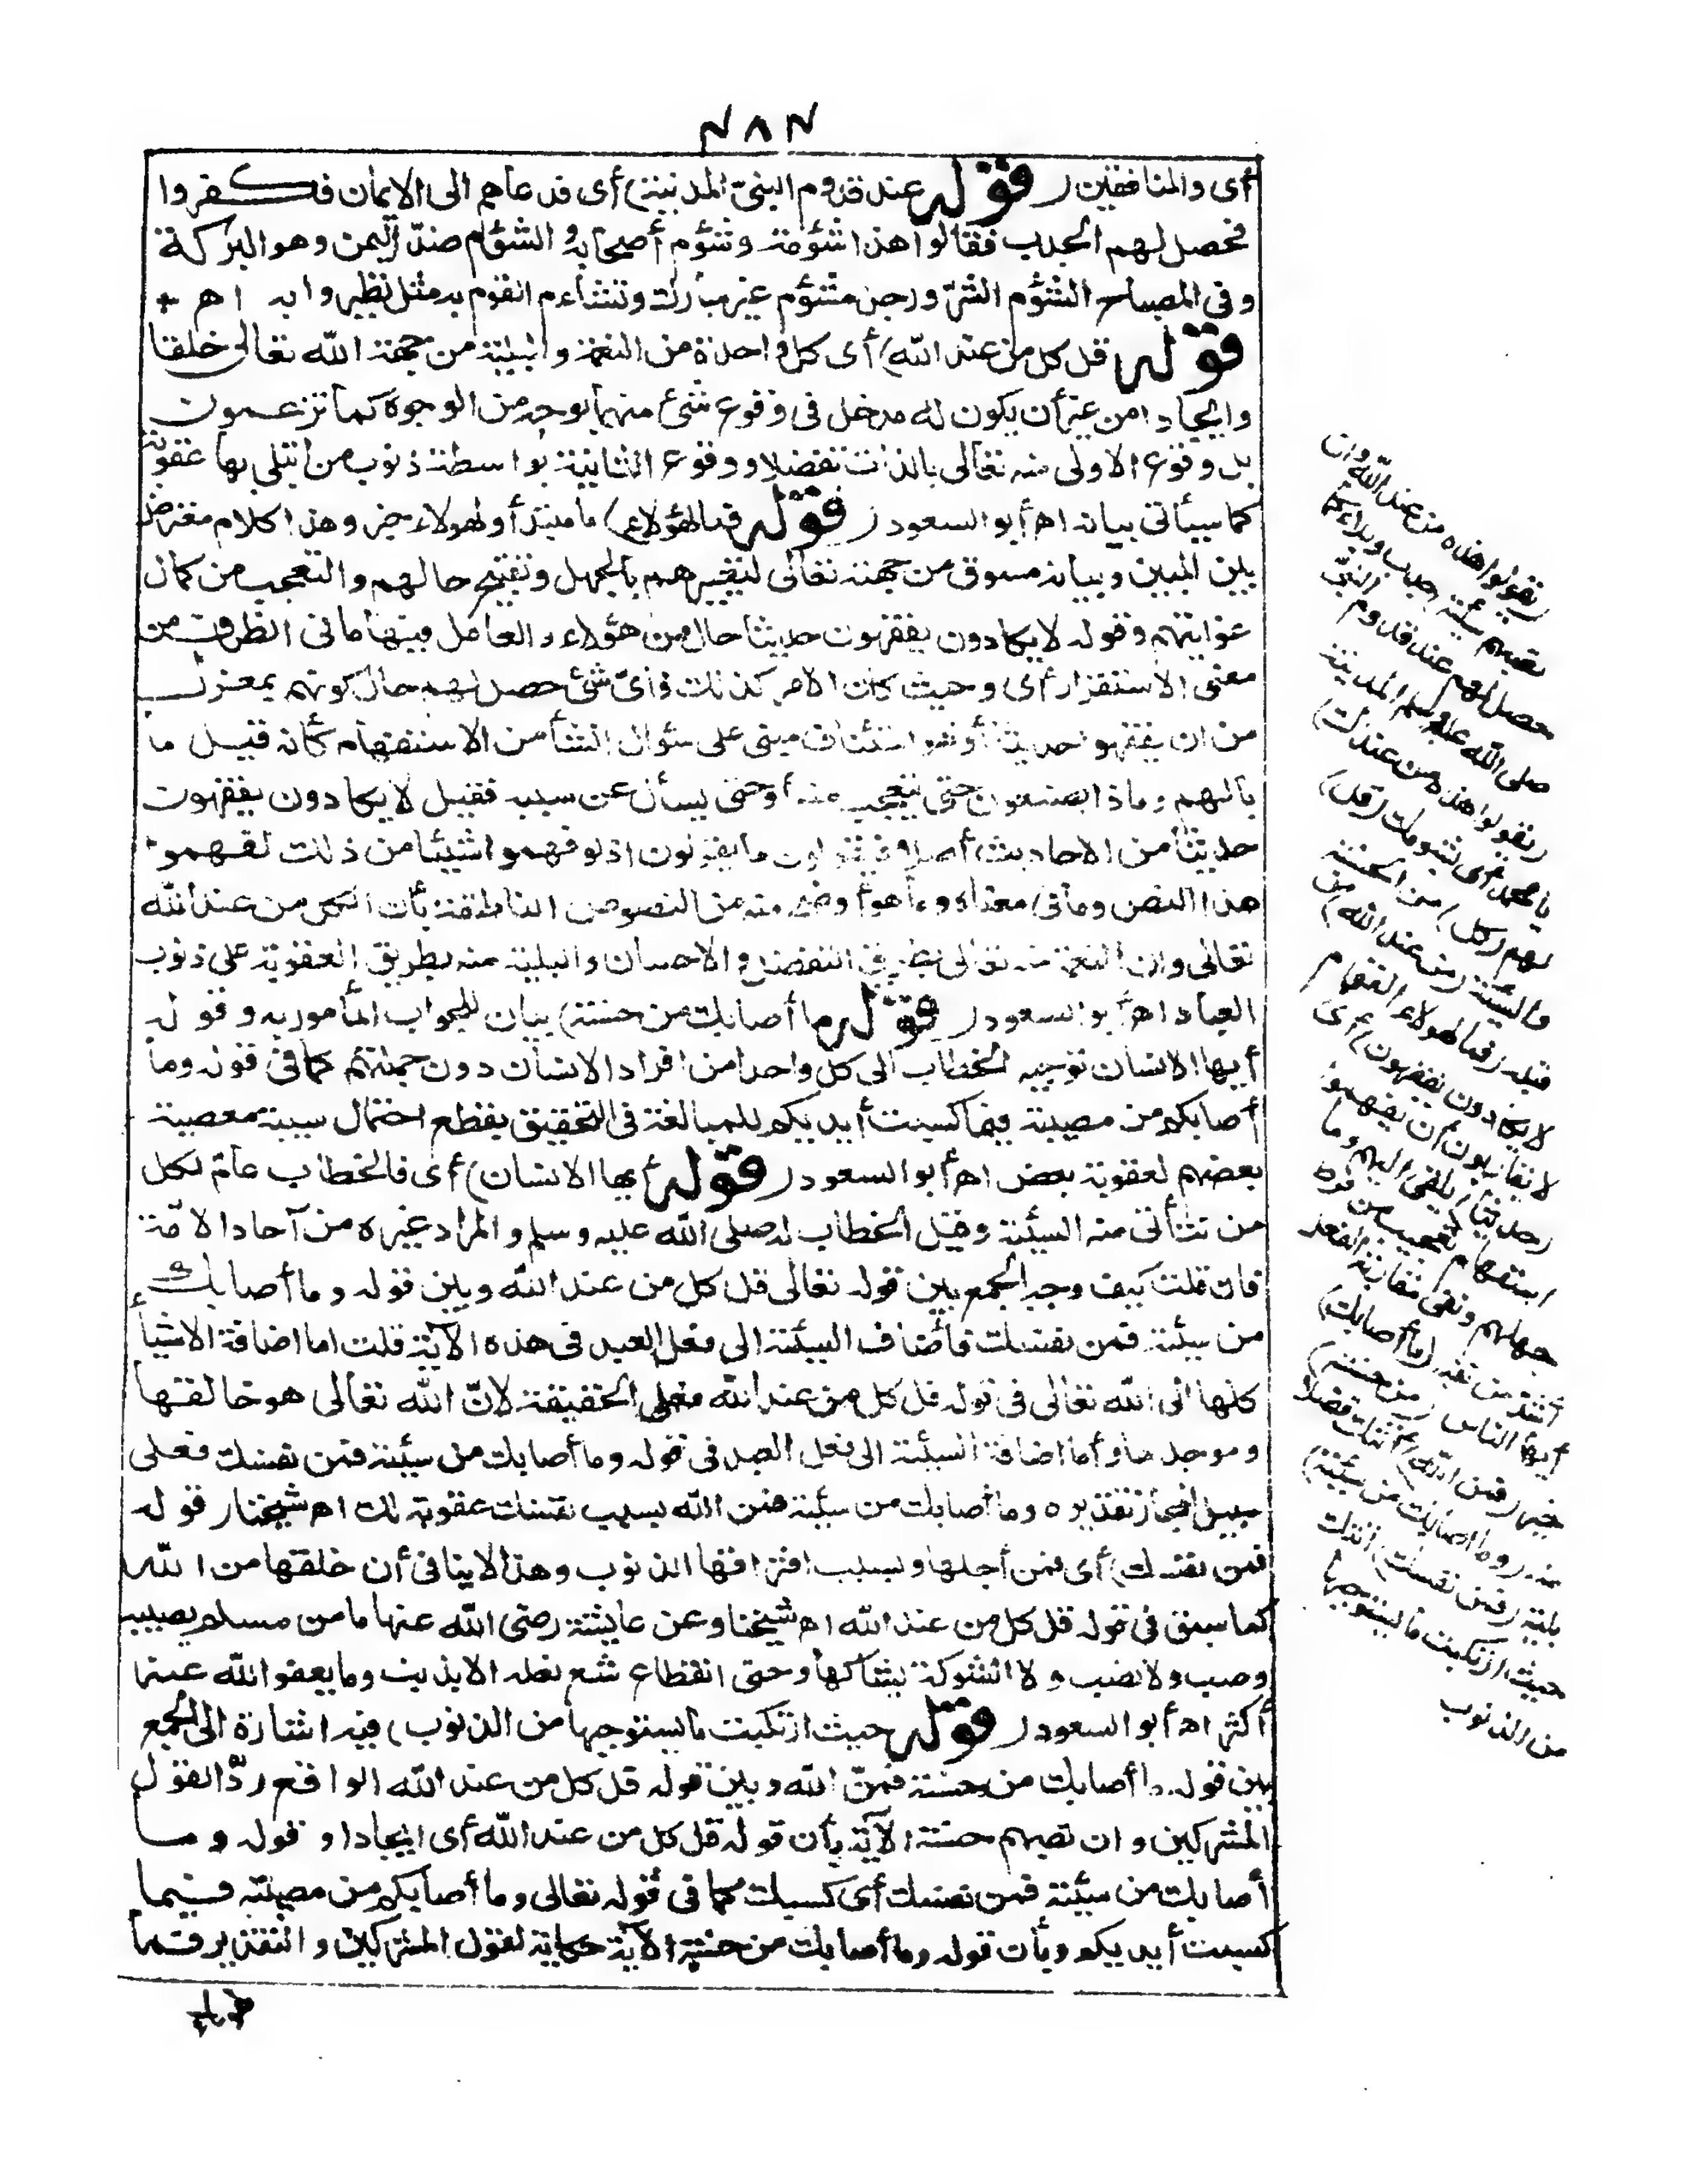 ٤٨٤
أى والمنافقين ( قوله عند قدوم النبىّ المدينة) أى فدعاهم الى الايمان فكفروا
فحصل لهم الجدب فقالوا هذا شؤمه وشؤم أصحابه والشؤم ضدّ اليمن وهو البركة
وفى المصباح الشؤم الشرّ ورجل مشؤم غير مبارك وتشاءم القوم به مثل تطيروا به اهـ
قوله قل كل من عند الله) أى كل واحدة من النعمة والبلية من جهة الله تعالى خلقا
وايجادا من غير أن يكون له مدخل فى وقوع شئ منهما بوجه من الوجوه كما تزعمون
بل وقوع الاولى منه تعالى بالذات تفضلا ووقوع الثانية بواسطة ذنوب من ابتلى بها عقوبة
كما سيأتى بيانه اهـ أبو السعود ( قوله فمال هؤلاء) ما مبتدأ ولهولاء خبر وهذا كلام معترض
بين المبين وبيانه مسوق من جهته تعالى لتعييرهم بالجهل وتقبيح حالهم والتعجيب من كمال
غوايتهم وقوله لا يكادون يفقهون حديثا حال من هؤلاء والعامل فيها ما فى الظرف من
معنى الاستقرار أى وحيث كان الامر كذلك فأىّ شئ حصل لهم حال كونهم بمعزل
من ان يفقهوا حديثا أو هو استئناف مبنى على سؤال نشأ من الاستفهام كأنه قيل ما
بالهم وماذا يصنعون حتى يتعجب منه أو حتى يسأل عن سببه فقيل لا يكادون يفقهون
حديثا من الاحاديث أصلا فيقولون ما يقولون اذ لو فهموا شيئا من ذلك لفهموا
هذا النص وما فى معناه وما هو أوضح منه من النصوص الناطقة بأن الكل من عند الله
تعالى وان النعمة منه تعالى بطريق التفضل والاحسان والبلية منه بطريق العقوبة على ذنوب
العباد اهـ أبو السعود ( قوله ما أصابك من حسنة) بيان للجواب المأمور به وقوله
أيها الانسان توجيه الخطاب الى كل واحد من افراد الانسان دون جملتهم كما فى قوله وما
أصابكم من مصيبة فبما كسبت أيديكم للمبالغة فى التحقيق بقطع احتمال سببية معصية
بعضهم لعقوبة بعض اهـ أبو السعود ( قوله أيها الانسان) أى فالخطاب عامّ لكل
من تتأتى منه السيئة وقيل الخطاب له صلى الله عليه وسلم والمراد غيره من آحاد الامّة
فان قلت كيف وجه الجمع بين قوله تعالى قل كل من عند الله وبين قوله وما أصابك
من سيئة فمن نفسك فأضاف السيئة الى فعل العبد فى هذه الآية قلت اما اضافة الاشياء
كلها الى الله تعالى فى قوله قل كل من عند الله فعلى الحقيقة لانّ الله تعالى هو خالقها
وموجدها وأما اضافة السيئة الى فعل العبد فى قوله وما أصابك من سيئة فمن نفسك فعلى
سبيل المجاز تقديره وما أصابك من سيئة فمن الله بسبب نفسك عقوبة لك اهـ شيخنا ( قوله
فمن نفسك) أى فمن أجلها وبسبب اقترافها الذنوب وهذا لا ينافى أن خلقها من الله
كما سبق فى قوله قل كل من عند الله اهـ شيخنا وعن عايشة رضى الله عنها ما من مسلم يصيبه
وصب ولا نصب ولا الشوكة يشاكها وحتى انقطاع شسع نعله الا بذنب وما يعفو الله عنه
أكثر اهـ أبو السعود ( قوله حيث ارتكبت ما يستوجبها من الذنوب) فيه اشارة الى الجمع
بين قوله ما أصابك من حسنة فمن الله وبين قوله قل كل من عند الله الواقع ردّا لقول
المشركين وان تصبهم حسنة الآية بأن قوله قل كل من عند الله أى ايجادا وقوله وما
أصابك من سيئة فمن نفسك أى كسبك كما فى قوله تعالى وما أصابكم من مصيبة فبما
كسبت أيديكم وبأن قوله وما أصابك من حسنة الآية حكاية لقول المشركين والتقدير فما
(يقولوا هذه من عند الله وان
تصبهم سيئة) جدب وبلاء كما
حصل لهم عند قدوم النبىّ
صلى الله عليه وسلم المدينة
(يقولوا هذه من عندك)
يا محمد أى بشومك (قل)
لهم (كل) من الحسنة
والسيئة (من عند الله) من
قبله (فمال هولاء القوم
لا يكادون يفقهون) أى
لا يقاربون أن يفهموا
(حديثا) يلقى اليهم وما
استفهام تعجيب من فرط
جهلهم ونفى مقاربة الفعل
أشدّ من نفيه (ما أصابك)
أيها الناس (من حسنة)
خير (فمن الله) أتتك فضلا
منه (وما اصابك من سيئة)
بلية (فمن نفسك) أتتك
حيث ارتكبت ما يستوجبها
من الذنوب